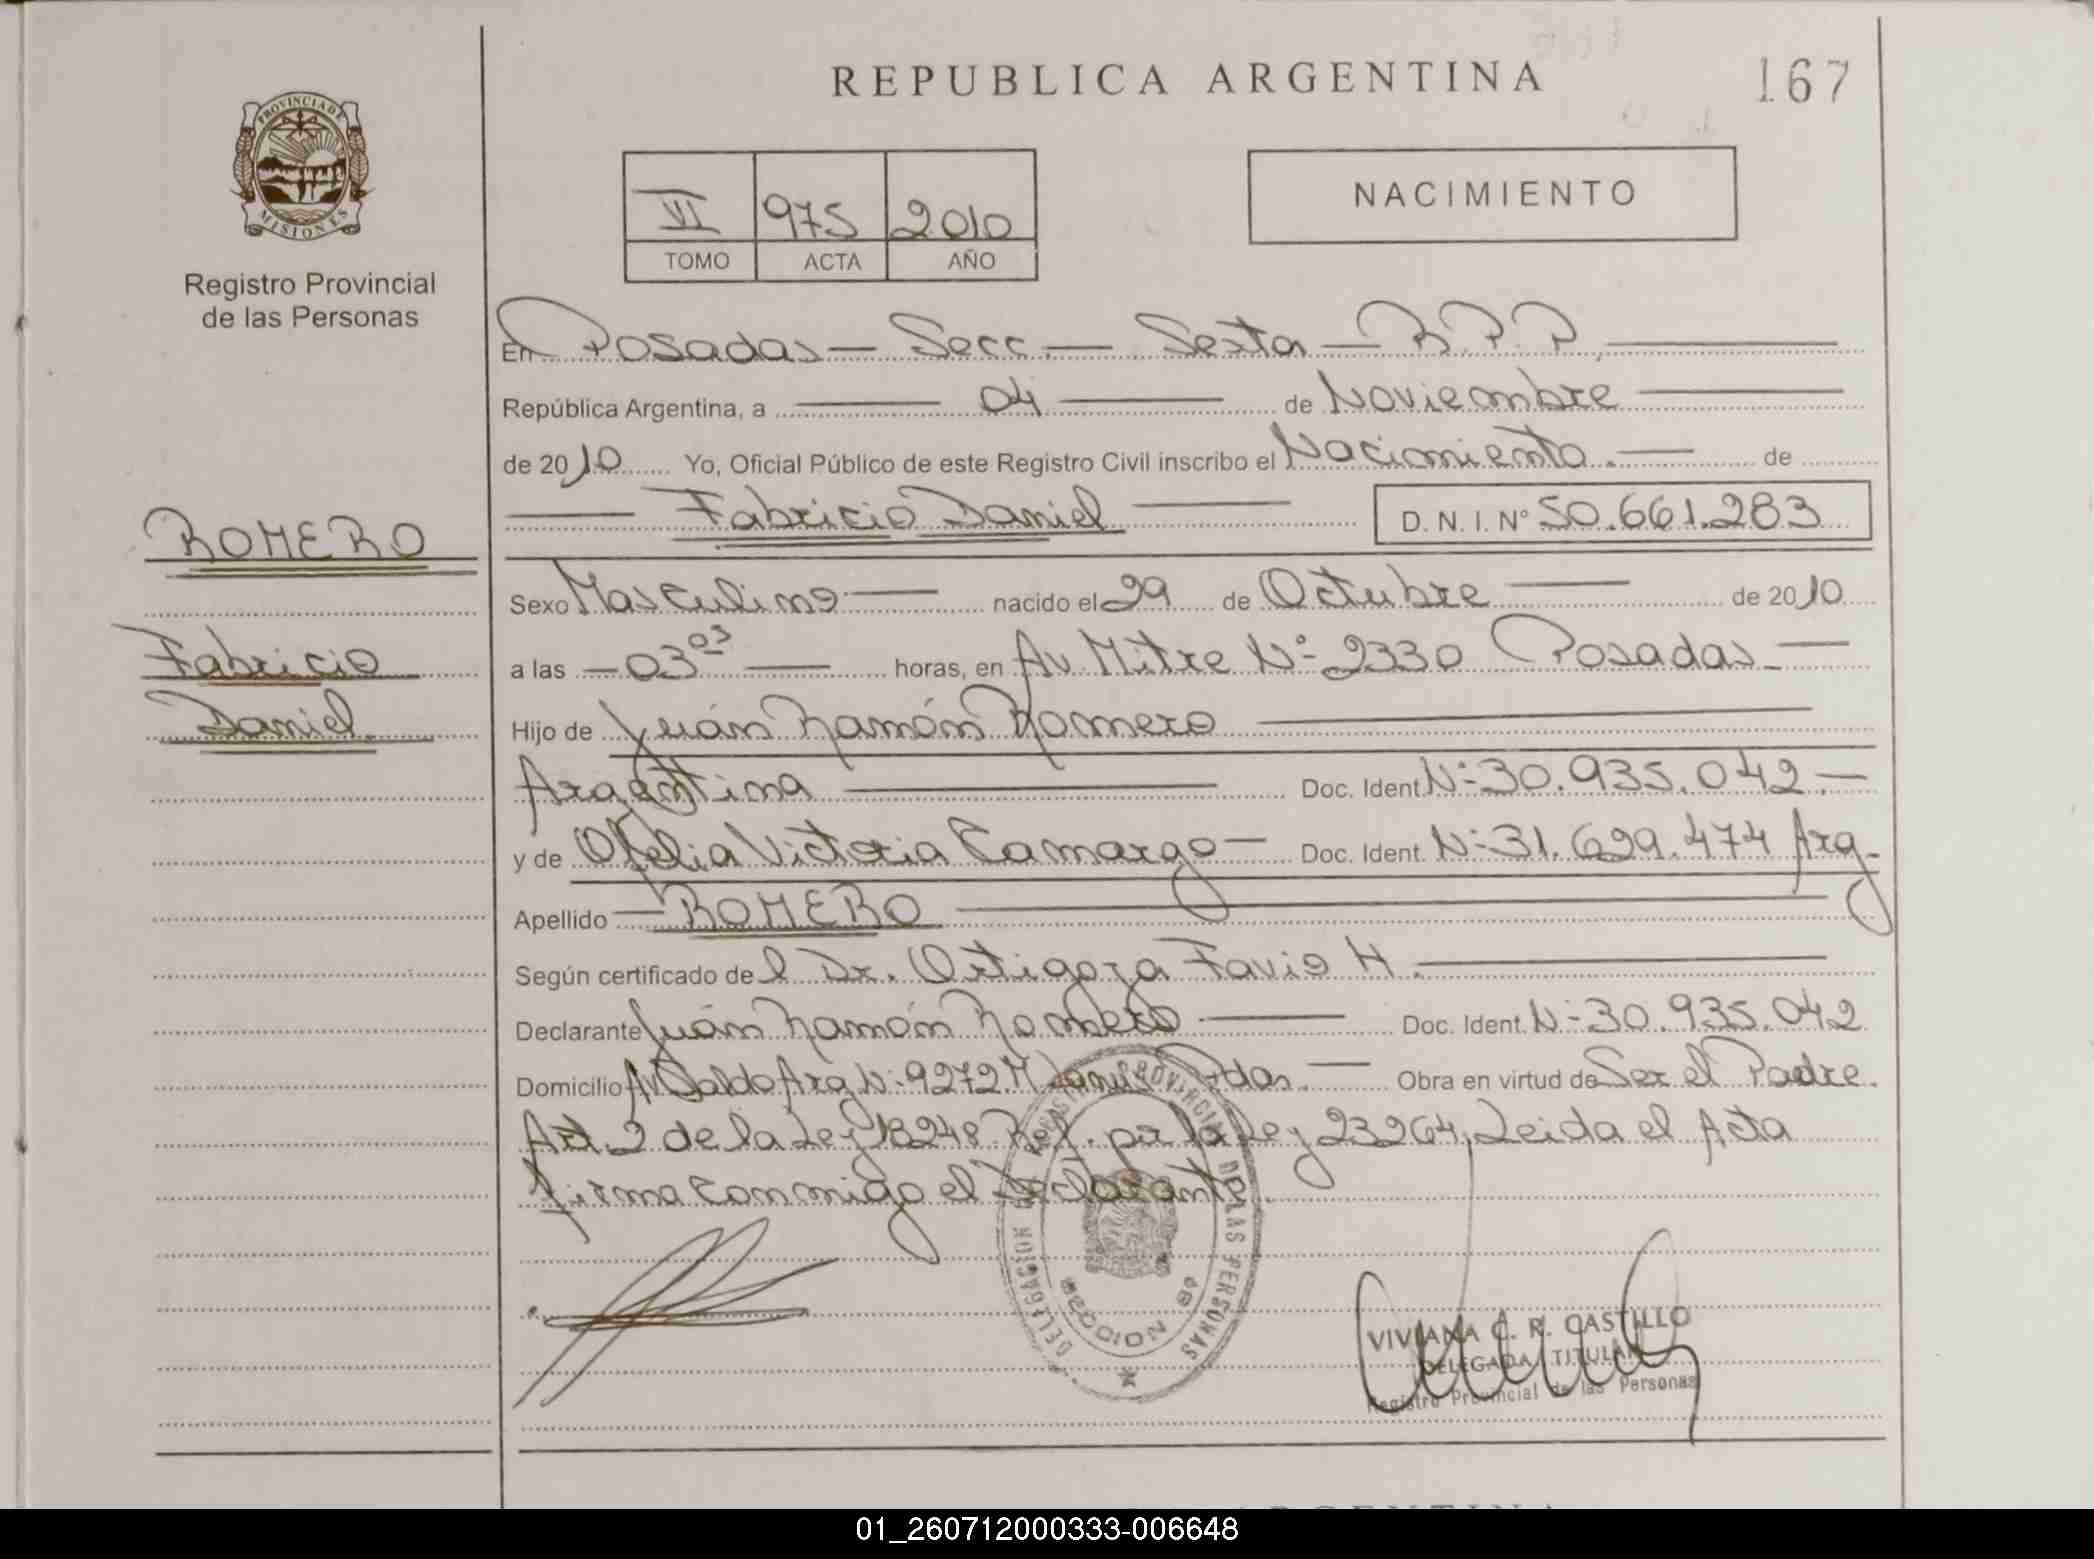 REPUBLICA ARGENTINA
167
PROVINCIA DE
MISIONES
Registro Provincial
de las Personas
VI 975 2010
TOMO ACTA AÑO
NACIMIENTO
En Posadas — Secc. — Sexta — R.P.P.
República Argentina, a — 04 — de Noviembre —
de 2010 Yo, Oficial Público de este Registro Civil inscribo el Nacimiento. — de
— Fabricio Daniel — D. N. I. Nº 50.661.283
ROMERO
Fabricio
Daniel
Sexo Masculino — nacido el 29 de Octubre — de 2010
a las — 03 03 — horas, en Av. Mitre Nº 2330 Posadas —
Hijo de Juán Ramón Romero —
Argentina — Doc. Ident. Nº 30.935.042 —
y de Ofelia Victoria Camargo — Doc. Ident. Nº 31.699.474 Arg.
Apellido — ROMERO —
Según certificado del Dr. Ortigoza Favio H. —
Declarante Juán Ramón Romero — Doc. Ident. Nº 30.935.042
Domicilio Av Arg Nº 9272 Pdas. — Obra en virtud de Ser el Padre.
Art. 2 de la Ley 18248 Ref. por la Ley 23264, Leida el Acta
firma conmigo el Declarante.
DELEGACION REGISTRO PROVINCIAL DE LAS PERSONAS
SECCION 6º
VIVIANA C. R. CASTILLO
DELEGADA TITULAR
Registro Provincial de las Personas
01_260712000333-006648